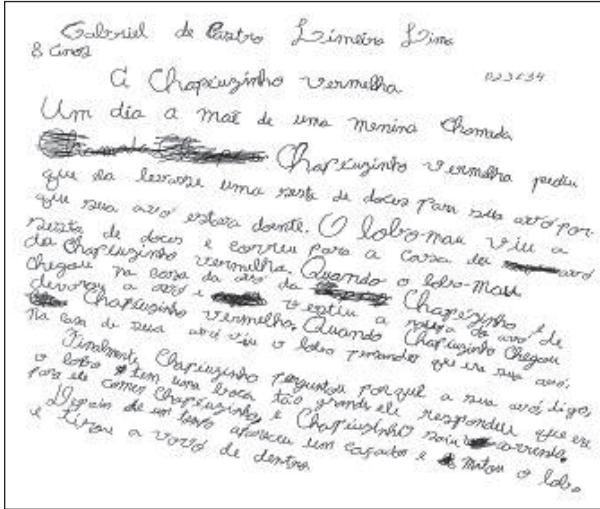 Gabriel de Castro Limeira Lima
8 anos
A Chapeuzinho vermelha
Um dia a mãe de uma menina chamada
Chapeuzinho vermelha pediu
que ela levasse uma sesta de doces para sua avó por
que sua avó estava doente. O lobo-mau viu a
sesta de doces e correu para a casa da avó
da Chapeuzinho vermelha. Quando o lobo-mau
chegou na casa da avó da Chapezinho ele
devorou a avó e vestiu a roupa da avó de
Chapeuzinho vermelha, Quando Chapeuzinho chegou
na casa de sua avó viu o lobo pensando que era sua avó.
Finalmente Chapeuzinho perguntou porquê a sua avó, digo,
o lobo tem uma boca tão grande ele respondeu que era
para ele comer Chapeuzinho, e Chapeuzinho saiu correndo.
Depois de um tempo apareceu um caçador e matou o lobo
e tirou a vovó de dentro.